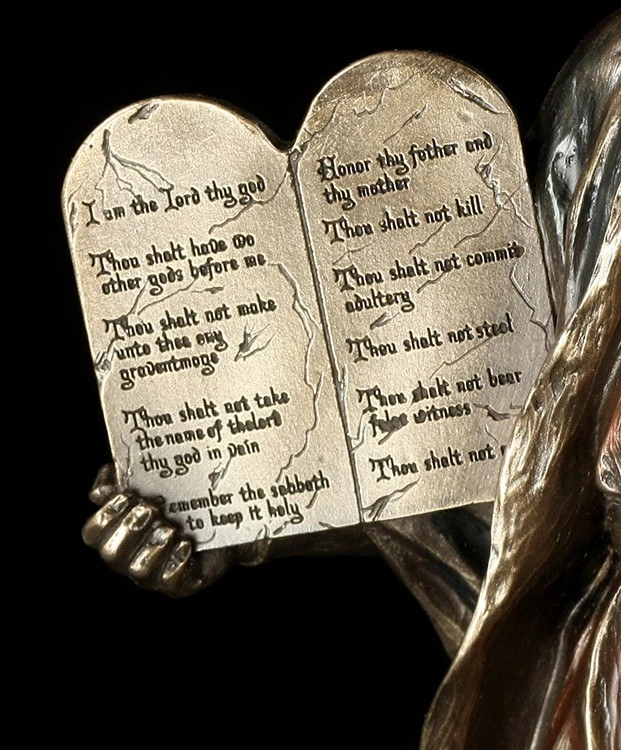 I am the Lord thy god
Thou shalt have no
other gods before me
Thou shalt not make
unto thee any
gravenimage
Thou shalt not take
the name of thelord
thy god in vain
emember the sabbath
to keep it holy
Honor thy father and
thy mother
Thou shalt not kill
Thou shalt not commit
adultery
Thou shalt not steal
Thou shalt not bear
false witness
Thou shalt not